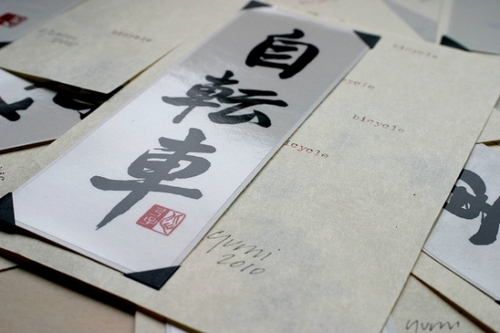 自転車
bicycle
bicycle
bicycle
bicycle
yumi
2010
bicycle
yumi